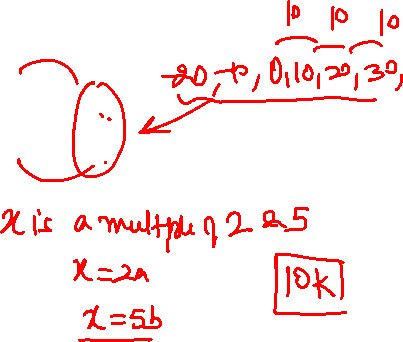 10 10 10
-20, -10, 0, 10, 20, 30,
x is a multiple of 2 & 5
x = 2a
10k
x = 5b